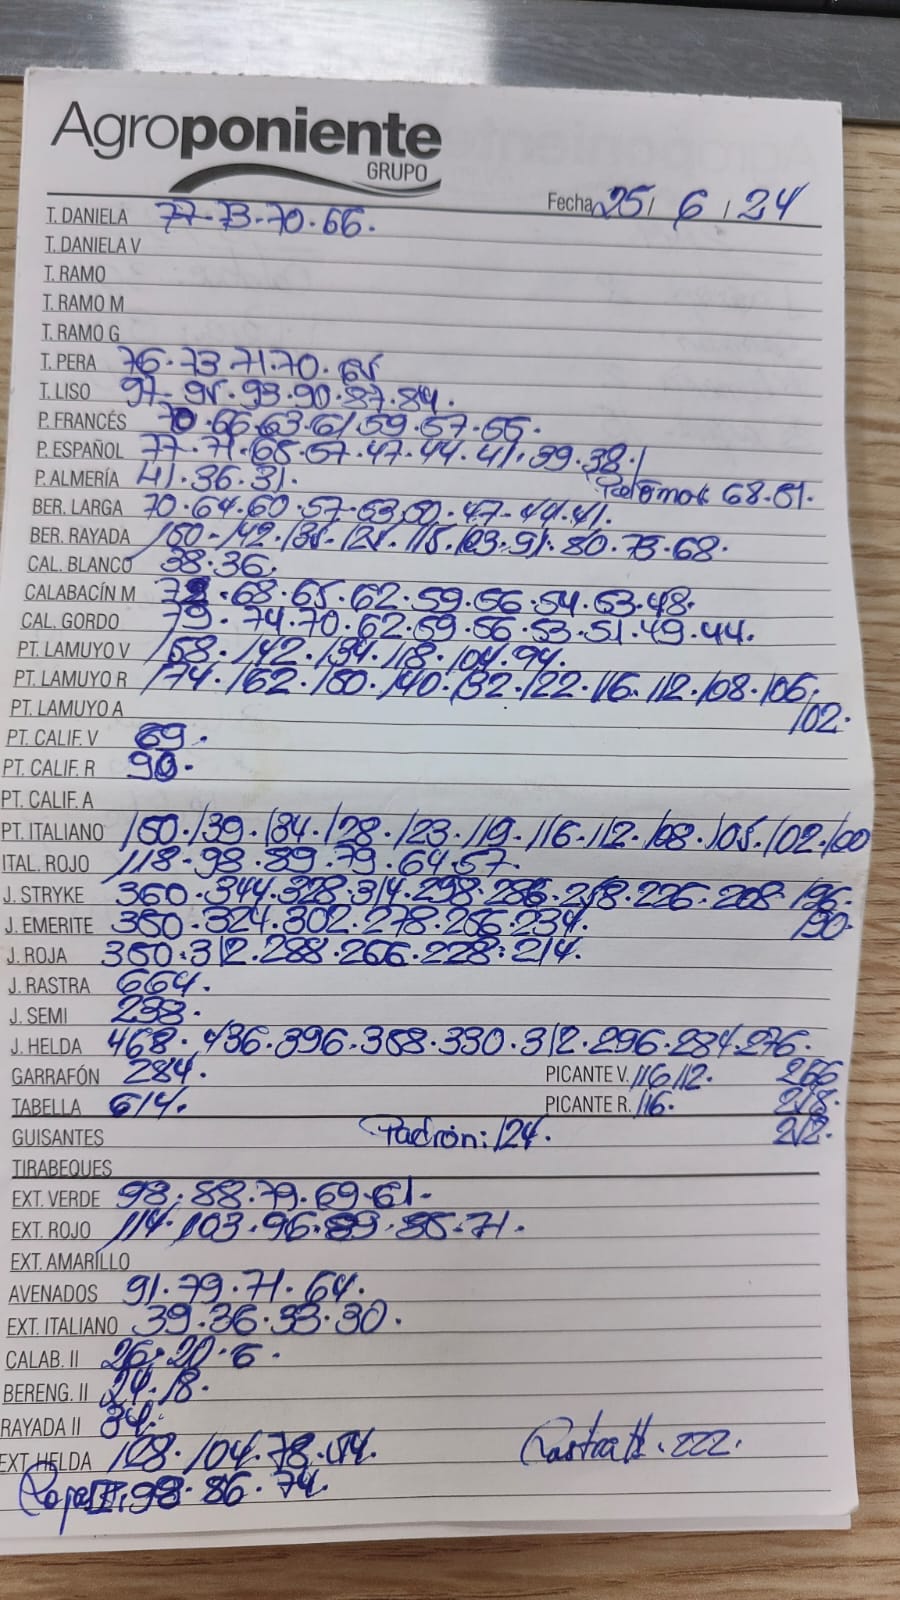 Agroponiente
GRUPO
Fecha 25 / 6 / 24
T. DANIELA 77-73-70.66.
T. DANELA V
T. RAMO
T. RAMO M
T. RAMO G
T. PERA 76.73.71.70.65
T. LISO 97-95.93.90.87.84.
P. FRANCÉS 70.66.63.61.59.57.55.
P. ESPAÑOL 77-71.65.57.47.44.41.39.38.
P. ALMERÍA 41.36.31. 68.51.
BER. LARGA 70.64.60.57.53.50.47-44.41.
BER. RAYADA 150-142.135.125.115.103.91.80.73.68.
CAL. BLANCO 38.36.
CALABACÍN M 72.68.65.62.59.56.54.53.48.
CAL. GORDO 79.74.70.62.59.56.53.51.49.44.
PT. LAMUYO V 158.142.134.118.104.94.
PT. LAMUYO R 174.162.150.140.132.122.116.112.108.106.
102.
PT. LAMUYO A
PT. CALIF. V 69.
PT. CALIF. R 90.
PT. CALIF. A
PT. ITALIANO 150.139.134.128.123.119.116.112.108.105.102.100
ITAL. ROJO 118-98.89.79.64.57.
J. STRYKE 360.344.328.314.298.286.258.226.208.196.
J. EMERITE 350.324.302.278.256.234. 190.
J. ROJA 350.312.288.266.228.214.
J. RASTRA 664.
J. SEMI 238.
J. HELDA 468.436.396.358.330.312.296.284.276.
GARRAFÓN 284. PICANTE V. 116.112. 266
TABELLA 614. PICANTE R. 116. 218.
GUISANTES Padrón: 124. 212.
TIRABEQUES
EXT. VERDE 98.88.79.69.61.
EXT. ROJO 114.103.96.89.85.71.
EXT. AMARILLO
AVENADOS 91.79.71.64.
EXT. ITALIANO 39.36.33.30.
CALAB. II 26.20.6.
BERENG. II 24.18.
RAYADA II 34.
EXT. HELDA 128.104.78.54. Rastra II.222.
Roja II.98.86.74.